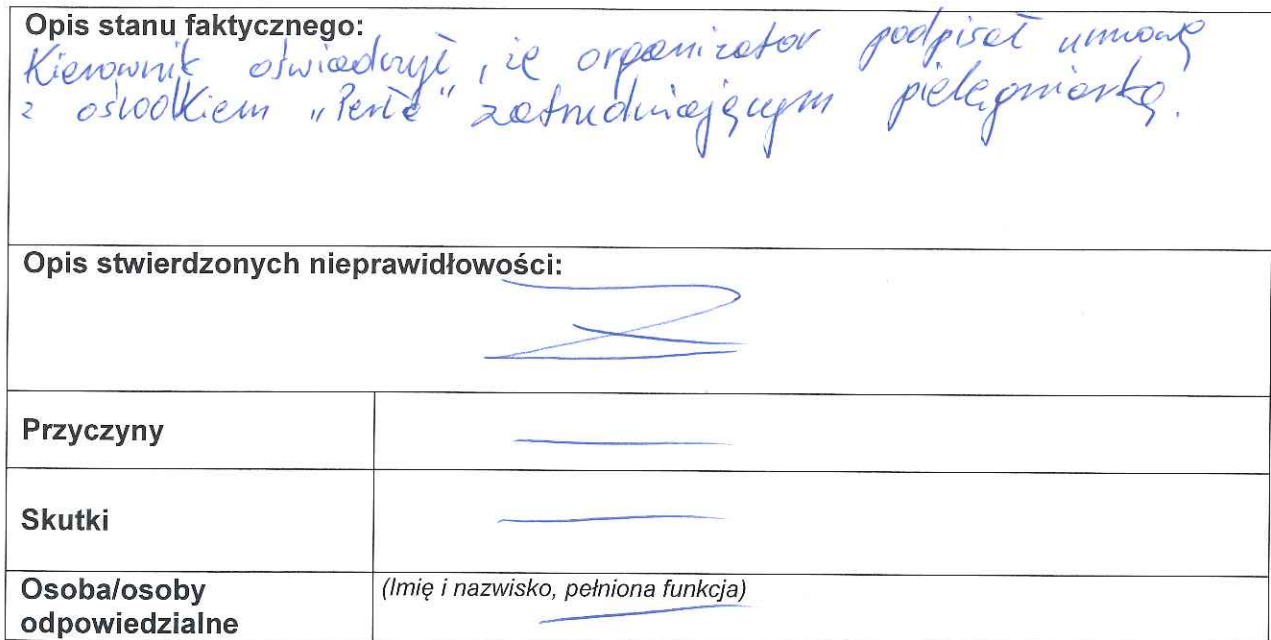 Opis stanu faktycznego:
Kierownik oświadczył, że organizator podpisał umowę
z ośrodkiem „Perła" zatrudniającym pielęgniarkę.
Opis stwierdzonych nieprawidłowości:
Przyczyny
Skutki
Osoba/osoby
odpowiedzialne
(Imię i nazwisko, pełniona funkcja)